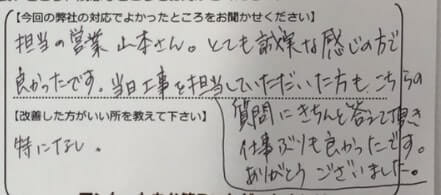 【今回の弊社の対応でよかったところをお聞かせください】
担当の営業 山本さん。とても誠実な感じの方で
良かったです。当日工事を担当していただいた方も、こちらの
質問にきちんと答えて頂き
仕事ぶりも良かったです。
ありがとうございました。
【改善した方がいい所を教えて下さい】
特になし。